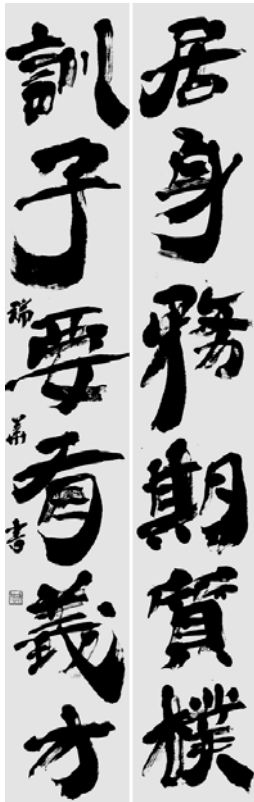 居身務期質樸
訓子要有義方
瑞華書